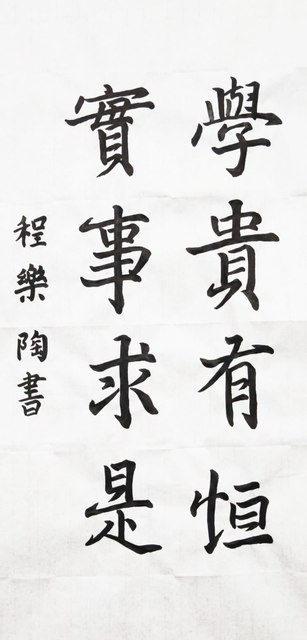 學貴有恒
實事求是
程樂陶書